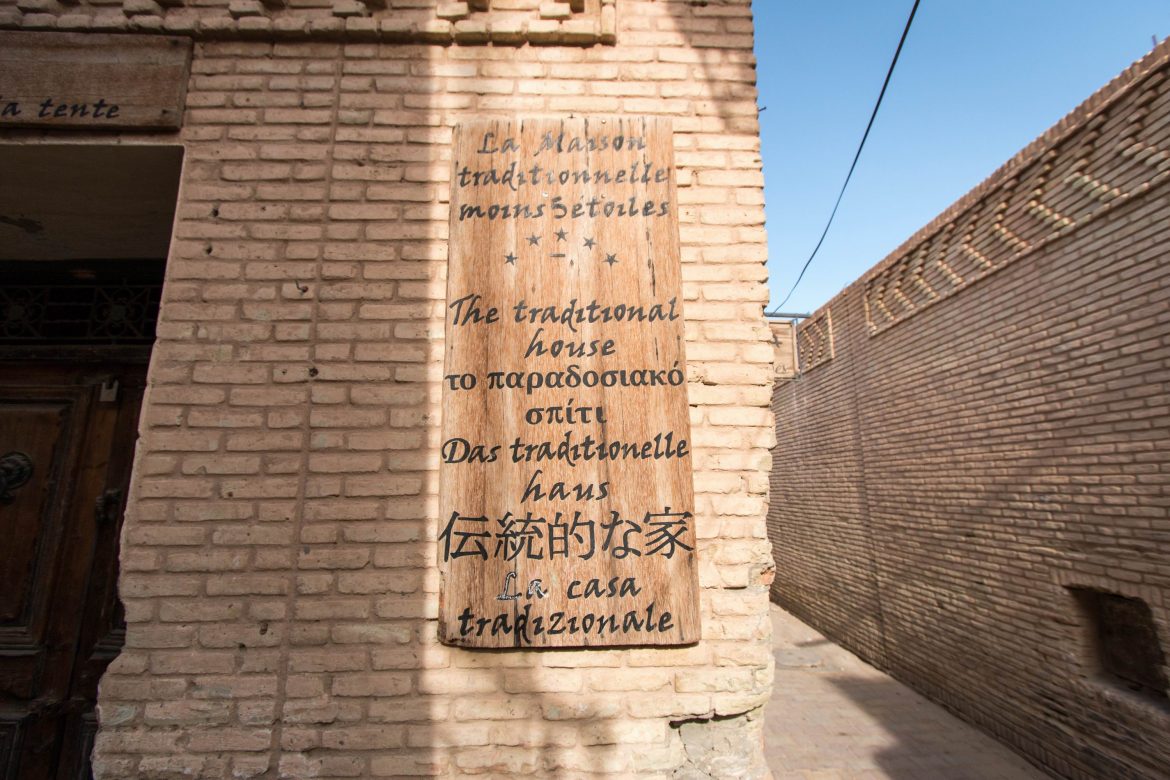 la tente
La Maison
traditionnelle
moins 5 étoiles
The traditional
house
το παραδοσιακό
σπίτι
Das traditionelle
haus
伝統的な家
La casa
tradizionale